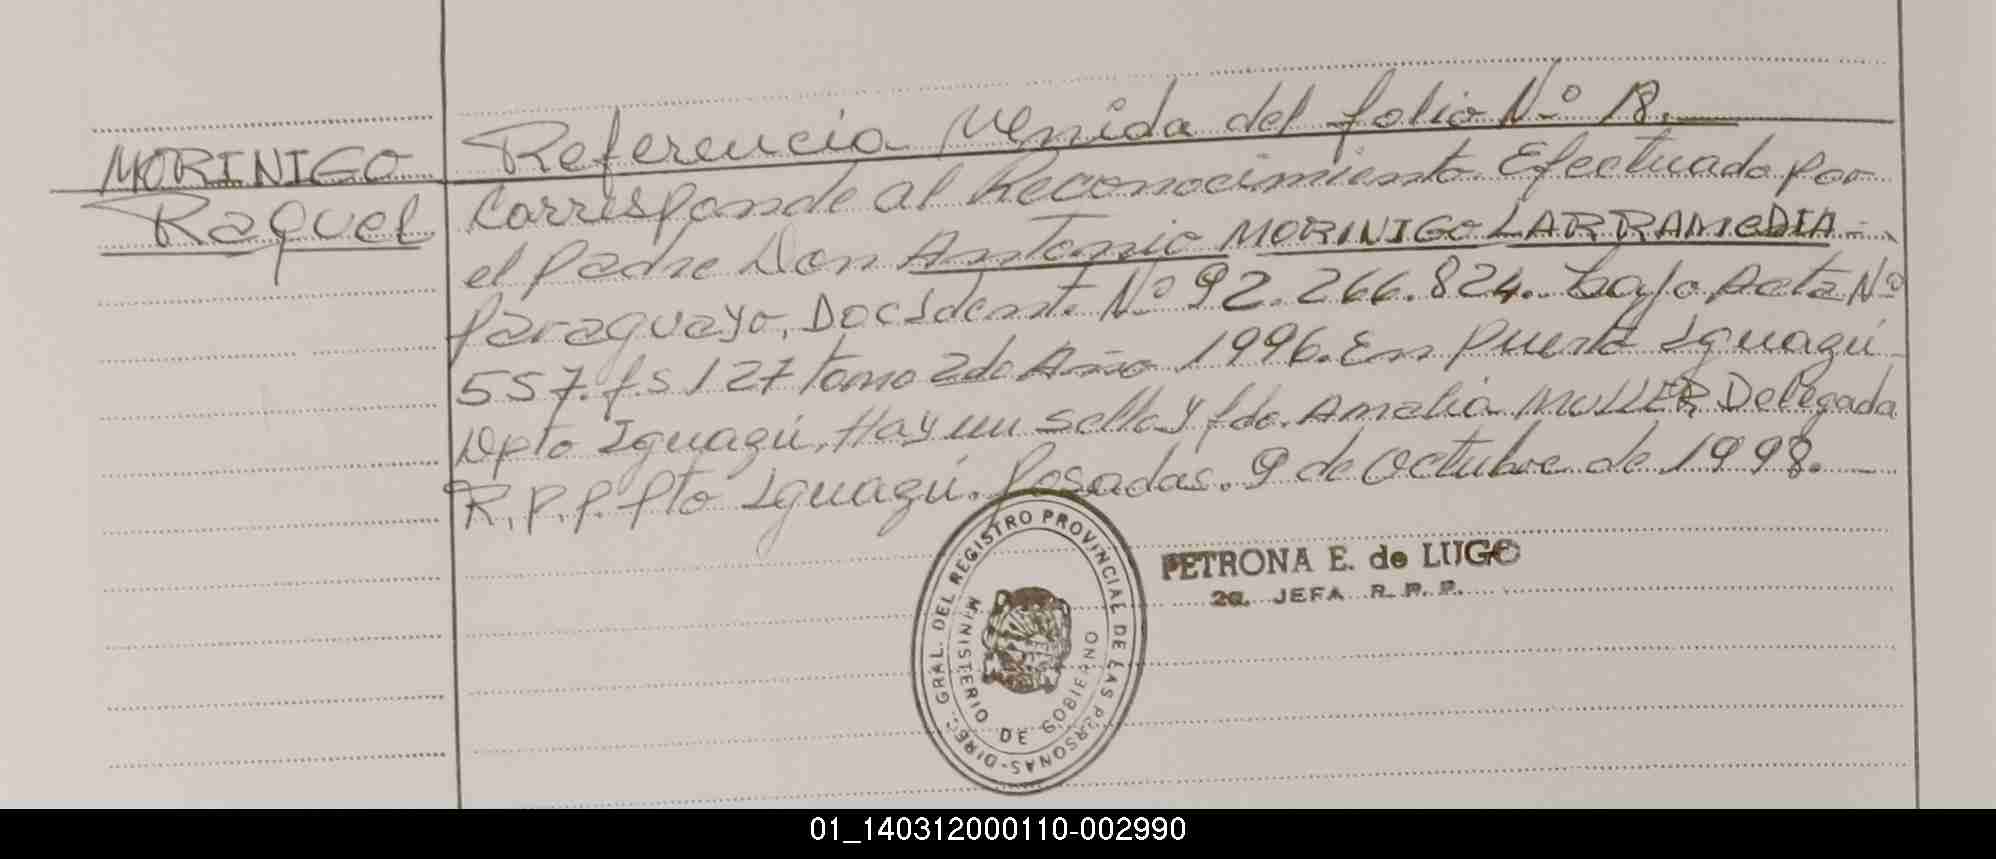 MORINIGO
Raquel
Referencia Venida del folio Nº 18.
Corresponde al Reconocimiento Efectuado por
el Padre Don Antonio MORINIGO LARRAMEDIA
Paraguayo, Doc Ident. Nº 92.266.824. bajo Acta Nº
557. fs 127 tomo 2do Año 1996. En Puerto Iguazú
Dpto Iguazú, Hay un sello y fdo. Amelia MULLER Delegada
R.P.P. Pto Iguazú. Posadas. 9 de Octubre de 1998.
DIREC. GRAL. DEL REGISTRO PROVINCIAL DE LAS PERSONAS
MINISTERIO DE GOBIERNO
PETRONA E. de LUGO
2a. JEFA R. P. P.
01_140312000110-002990